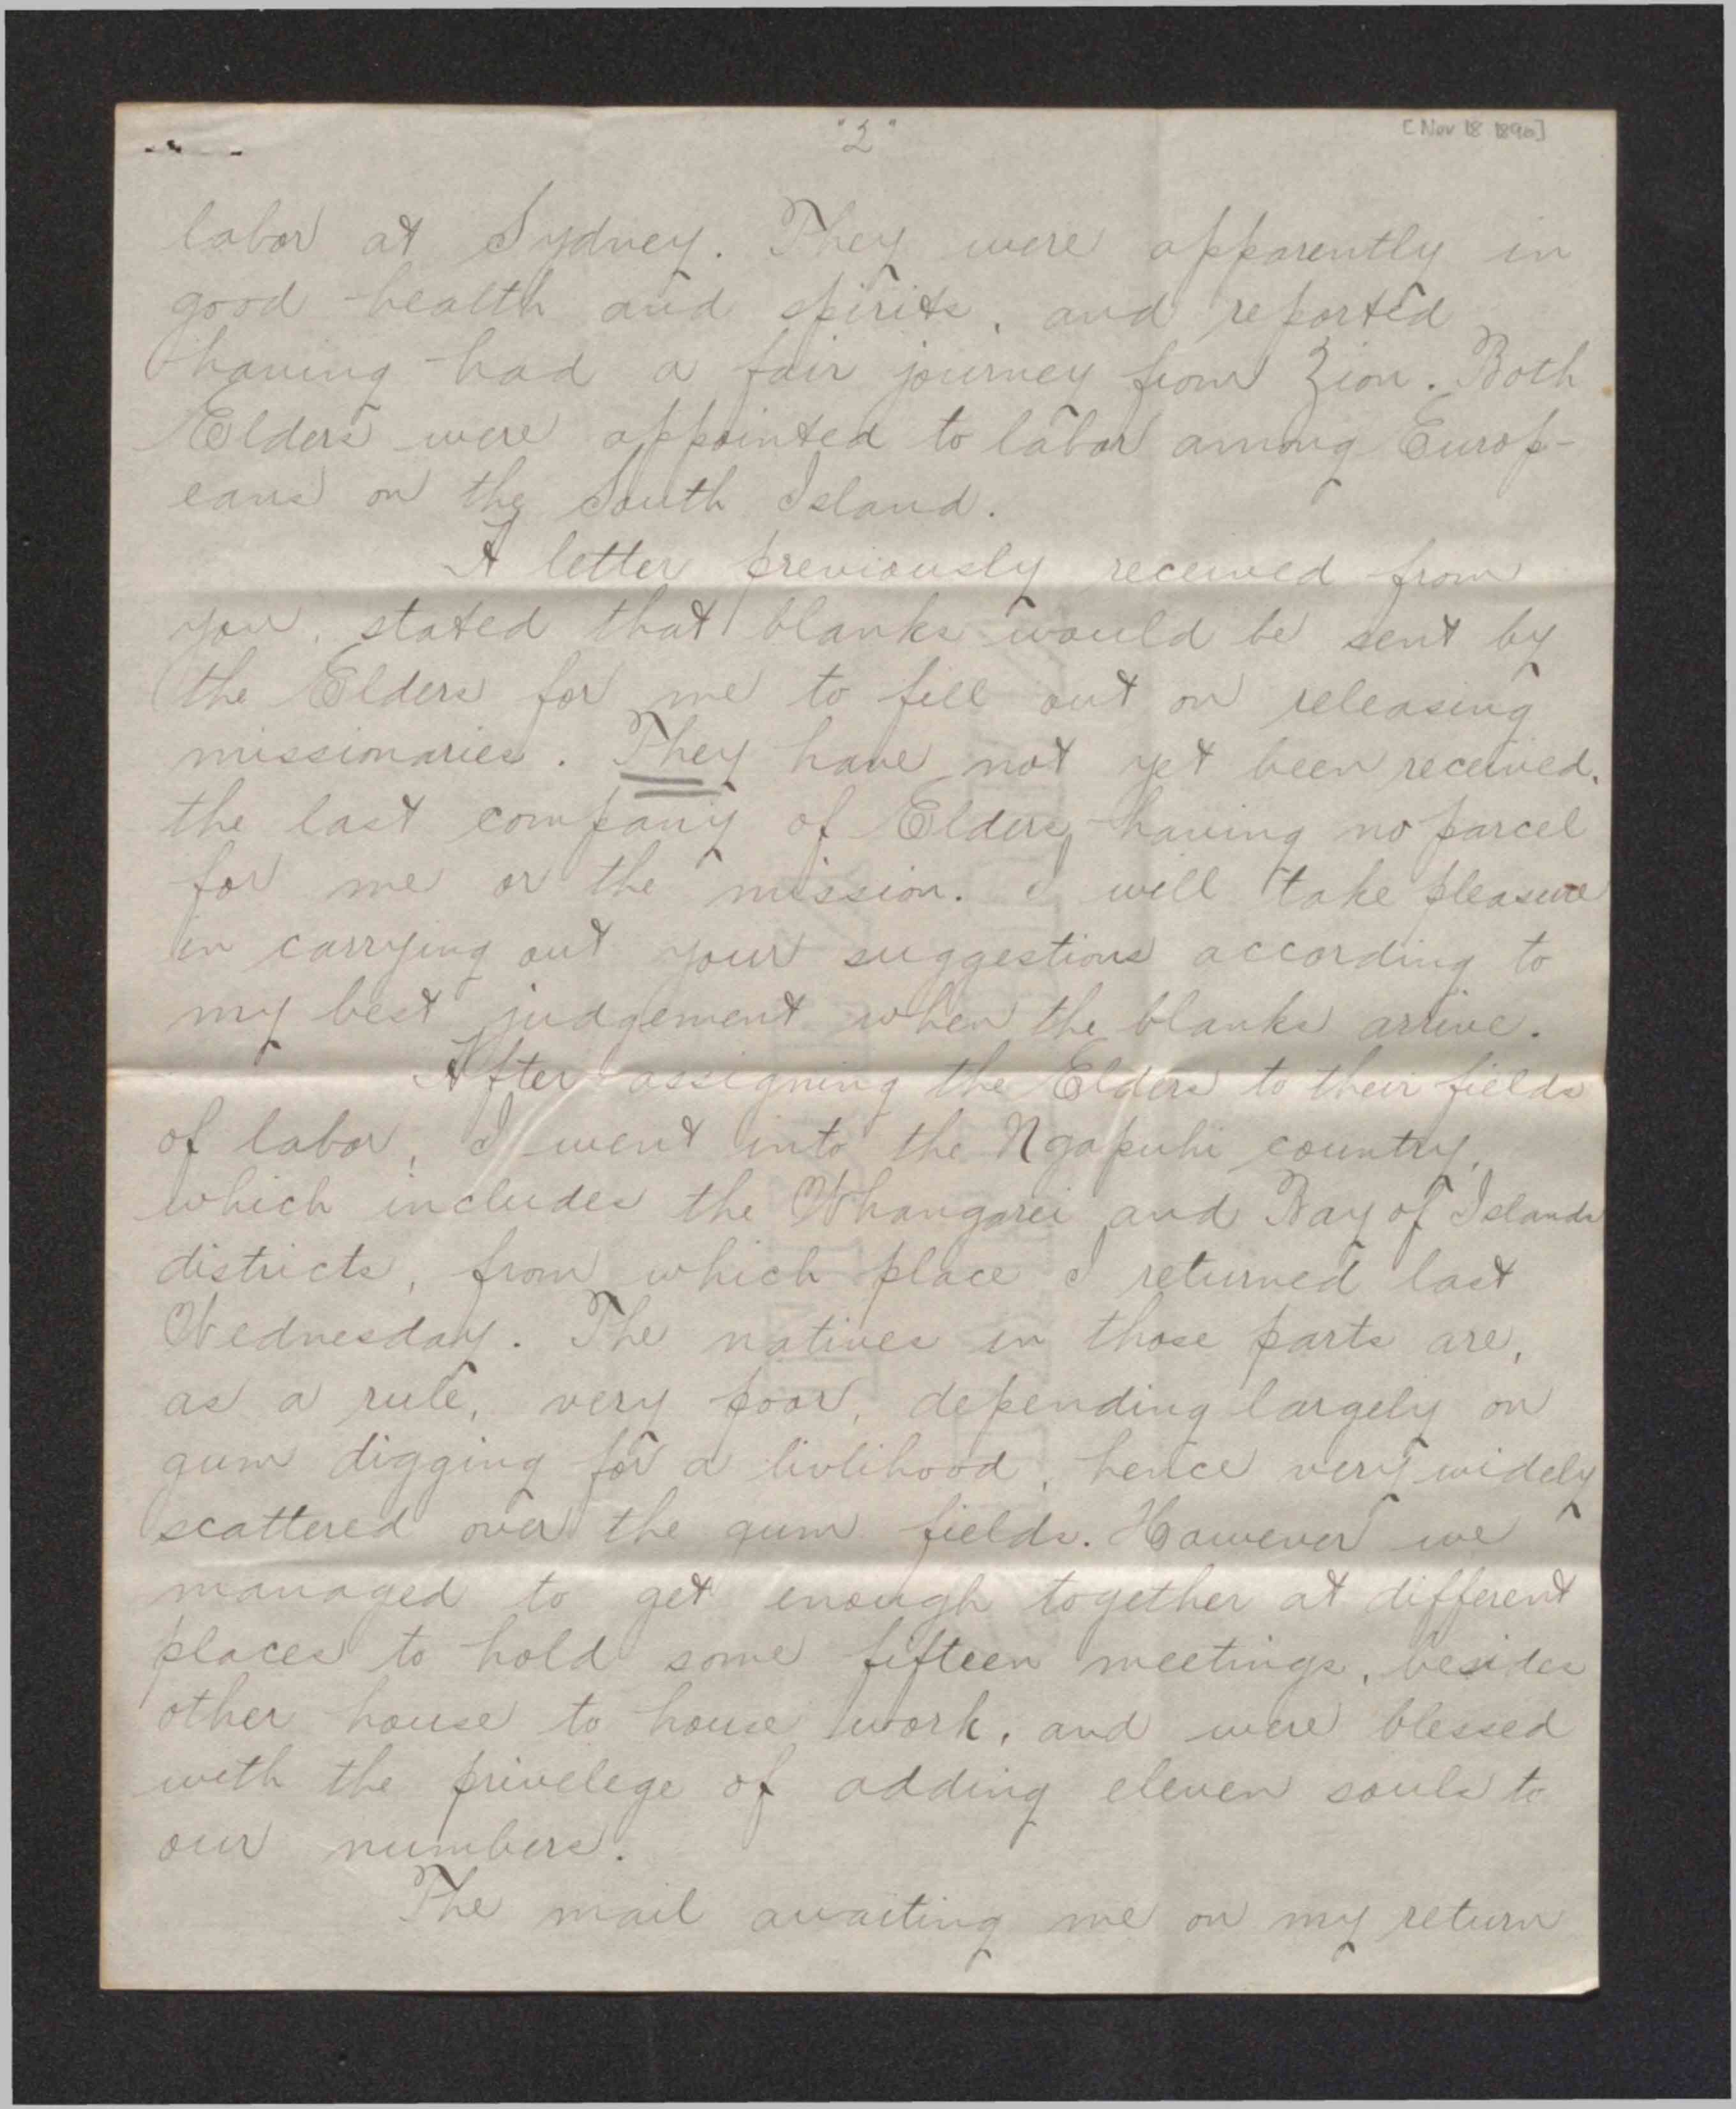 "2"
[Nov 18 1890]
labor at Sydney. They were apparently in
good health and spirits, and reported
having had a fair journey from Zion. Both
Elders were appointed to labor among Europ-
eans on the South Island.
A letter previously received from
you, stated that blanks would be sent by
the Elders for me to fill out on releasing
missionaries. They have not yet been received,
the last company of Elders, having no parcel
for me or the mission. I will take pleasure
in carrying out your suggestions according to
my best judgement when the blanks arrive.
After assigning the Elders to their fields
of labor, I went into the Ngapuhi country,
which includes the Whangarei and Bay of Islands
districts, from which place I returned last
Wednesday. The natives in those parts are,
as a rule, very poor, depending largely on
gum digging for a livlihood, hence very widely
scattered over the gum fields. However we
managed to get enough together at different
places to hold some fifteen meetings, besides
other house to house work, and were blessed
with the privelege of adding eleven souls to
our numbers.
The mail awaiting me on my return